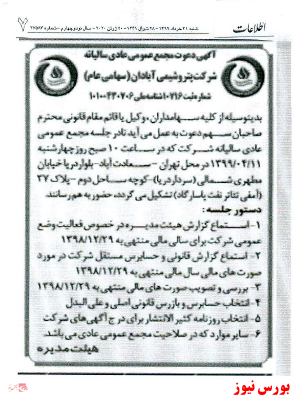 اطلاعات
شنبه ۳۱ خرداد ۱۳۹۹ - ۲۸ شوال ۱۴۴۱ - ۲۰ ژوئن ۲۰۲۰ - سال نود و چهارم - شماره
۷
آگهی دعوت مجمع عمومی عادی سالیانه
شرکت پتروشیمی آبادان (سهامی عام)
شماره ثبت ۱۰۷۱۶ شناسه ملی ۱۰۱۰۰۴۳۰۷۰۶
بدینوسیله از کلیه سهامداران، وکیل یا قائم مقام قانونی محترم
صاحبان سهم دعوت به عمل می آید تا در جلسه مجمع عمومی
عادی سالیانه شرکت که در ساعت ۱۰ صبح روز چهارشنبه
۱۳۹۹/۰۴/۱۱ در محل تهران - سعادت آباد - بلوار دریا خیابان
مطهری شمالی (سردار دریا) - کوچه ساحل دوم - پلاک ۲۷
(آمفی تئاتر نفت پاسارگاد) تشکیل می گردد، حضور به هم رسانند.
دستور جلسه:
۱- استماع گزارش هیئت مدیره در خصوص فعالیت و وضع
عمومی شرکت برای سال مالی منتهی به ۱۳۹۸/۱۲/۲۹
۲- استماع گزارش قانونی و حسابرس مستقل شرکت در مورد
صورت های مالی سال مالی منتهی به ۱۳۹۸/۱۲/۲۹
۳- بررسی و تصویب صورت های مالی منتهی به ۱۳۹۸/۱۲/۲۹
۴- انتخاب حسابرس و بازرس قانونی اصلی و علی البدل
۵- انتخاب روزنامه کثیر الانتشار برای درج آگهی های شرکت
۶- سایر موارد که در صلاحیت مجمع عمومی عادی می باشد.
هیئت مدیره
بورس نیوز